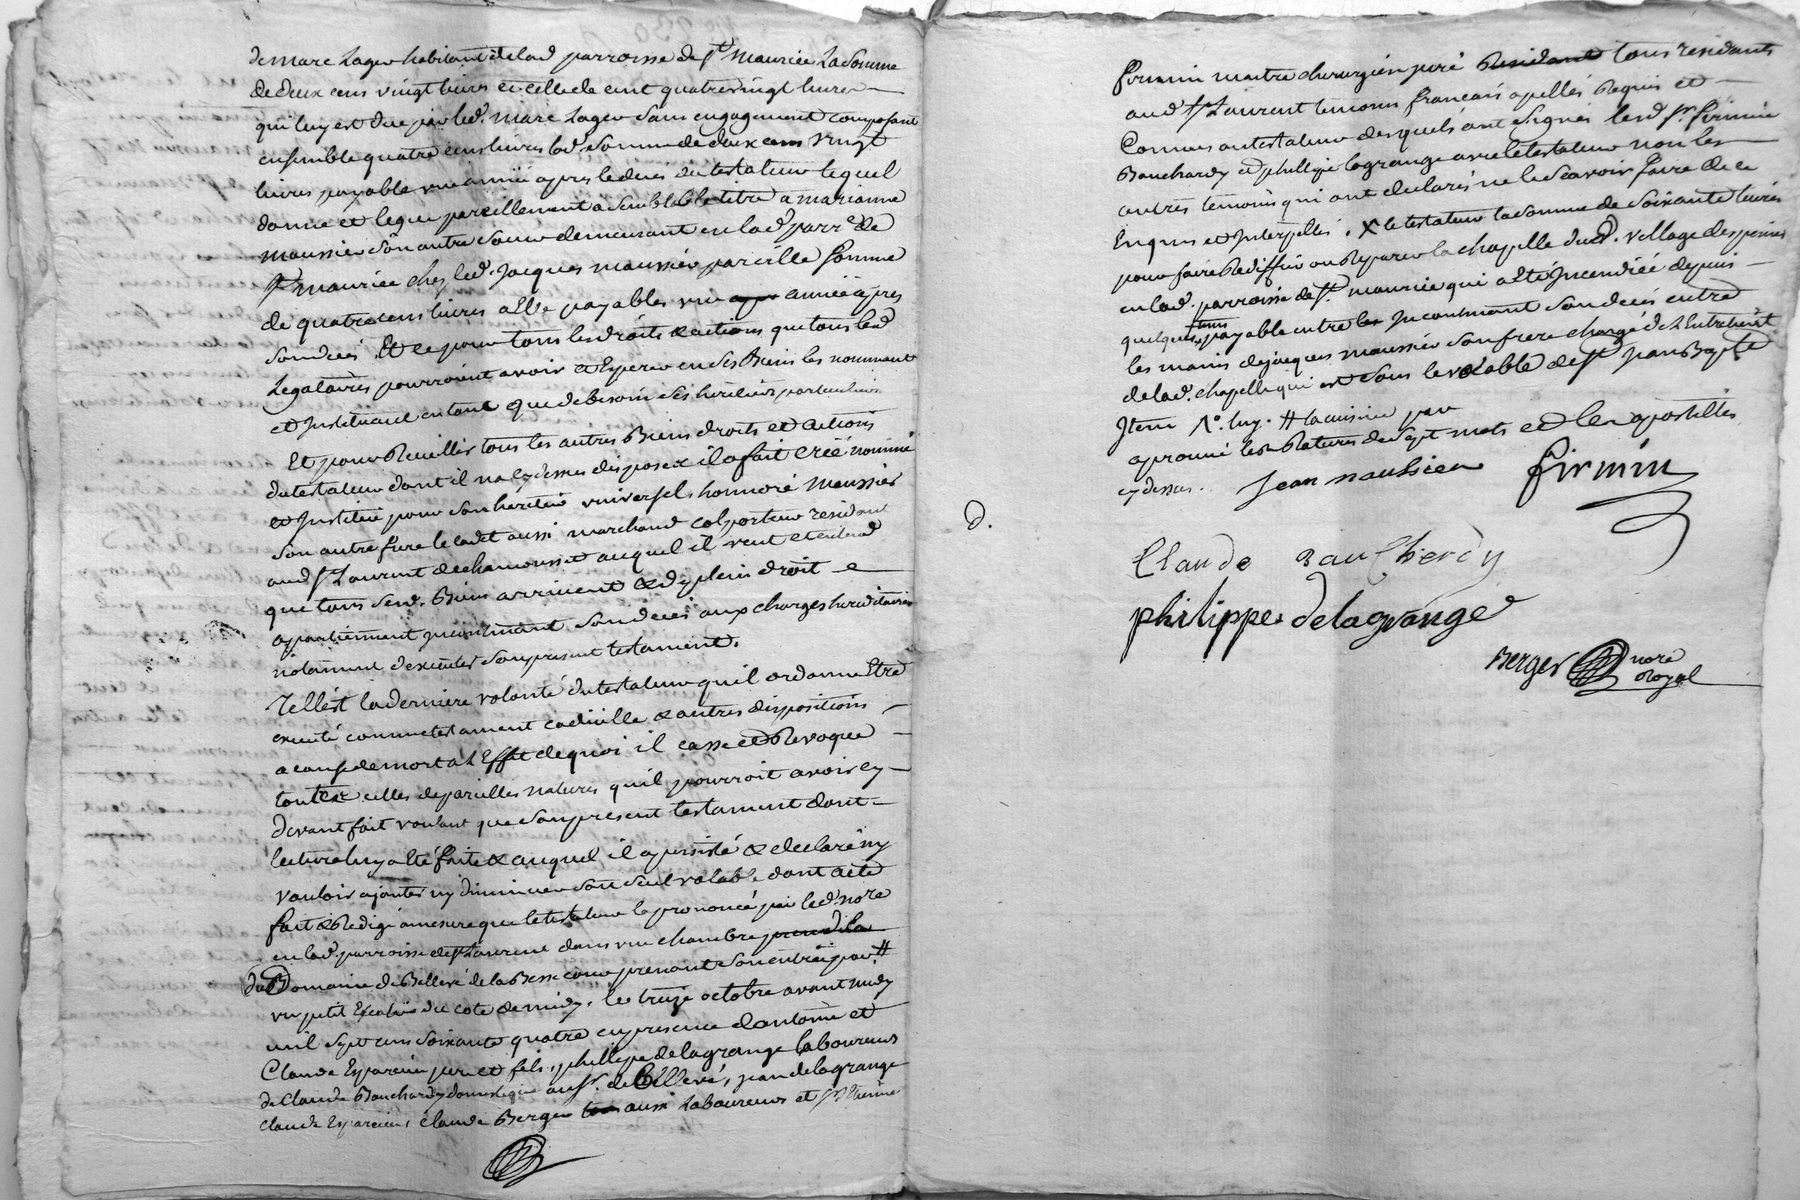 de marc Lager habitant de lad parroisse de St. Mauricë La Somme
de deux cens vingt livres et celle de cent quatre vingt livres
qui luy est due par led. marc Lager Sans engagement composant
ensemble quatre cens livres lad. Somme de deux cens vingt
livres payable une année apres le decés du testateur lequel
donne et legue pareillement a semblable titre a marianne
maussier Son autre Soeur demeurant en lad. parr.e de
St. mauricë chez led. Jacques maussier pareille Somme
de quatre cens livres a elle payables une année apres
Son deces Et ce pour tous les droits & actions que tous lesd
Legataires pourroient avoir & Esperer en ses Biens les nommant
et Instituant en tant que de besoin ses heritiers particuliers
Et pour Recuillir tous les autres Biens droits et actions
du testateur dont il na cy dessus disposés il a fait créé nommé
et Institué pour Son heritier universel, honnoré maussier
Son autre frere le cadet aussi marchand colporteur residant
aud St. Laurent de chamousset auquel il veut et entend
que tous Sesd. Biens arrivent & dy plein droit
apartiennent incontinant Son deces aux charges hereditaires
notament d'executer Son present testament.
Tell'est la derniere volonté du testateur qu'il ordonne Etre
executé comme testament codicille & autres dispositions
a cause de mort a L'Effet de quoi il casse et Revoque
toutes celles de pareilles natures qu'il pourroit avoir cy
devant fait voulant que Son present testament dont
lecture luy a été faite & auquel il a persisté & declaré ny
vouloir ajouter ny diminuer Soit Seul valable dont acte
fait & Redigé a mesure que le testateur l'a prononcé par led. no.re
en lad. parroisse de St. Laurent dans une chambre
du Domaine de Bellevé de la Besse comprenant Son entrée par #
un petit Escalier du coté de midy. le treize octobre avant midy
mil Sept cens Soixante quatre en presence d'antoine et
Claude Esparcieu pere et fils, phillipe delagrange laboureurs
de Claude Bouchardy domestique au Sr. de Bellevé, jean delagrange
Claude Esparcieu, claude Berger aussi Laboureurs et Sr. Etienne
firmin maitre chirurgien juré Residant tous residants
aud St. Laurent temoins francais apellés Requis et
Connus au testateur desquels ont Signés lesd Sr. firmin
Bouchardy et phillipe lagrange avec le testateur non les
autres temoins qui ont declarés ne le Sçavoir faire de ce
Enquis et Interpellés. X le testateur la Somme de Soixante livres
pour faire Rediffier ou Reparer la chapelle dud. village des
en lad. parroisse de St. mauricë qui a été Incendiée depuis
quelque tems payable entre les Incontinant Son deces entre
les mains de jacques maussier Son frere chargé de L'Entretient
de lad. chapelle qui est Sous le vocable de St. Jean Bapte
Item # la cuisine par
aprouvé les Ratures de Sept mots et les apostilles
cy dessus. Jean maussier firmin
D.
Claude Baucherdy
philippe delagrange
Berger nore
Royal